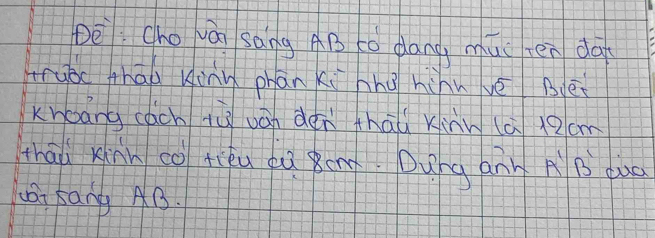 Đề: Cho vật sáng AB có dạng mũi tên đặt
trước thấu kính phân kì như hình vẽ Biết
khoảng cách từ vật đến thấu kính là 12cm
thấu kính có tiêu cự 8cm. Dựng ảnh A'B' của
vật sáng AB.